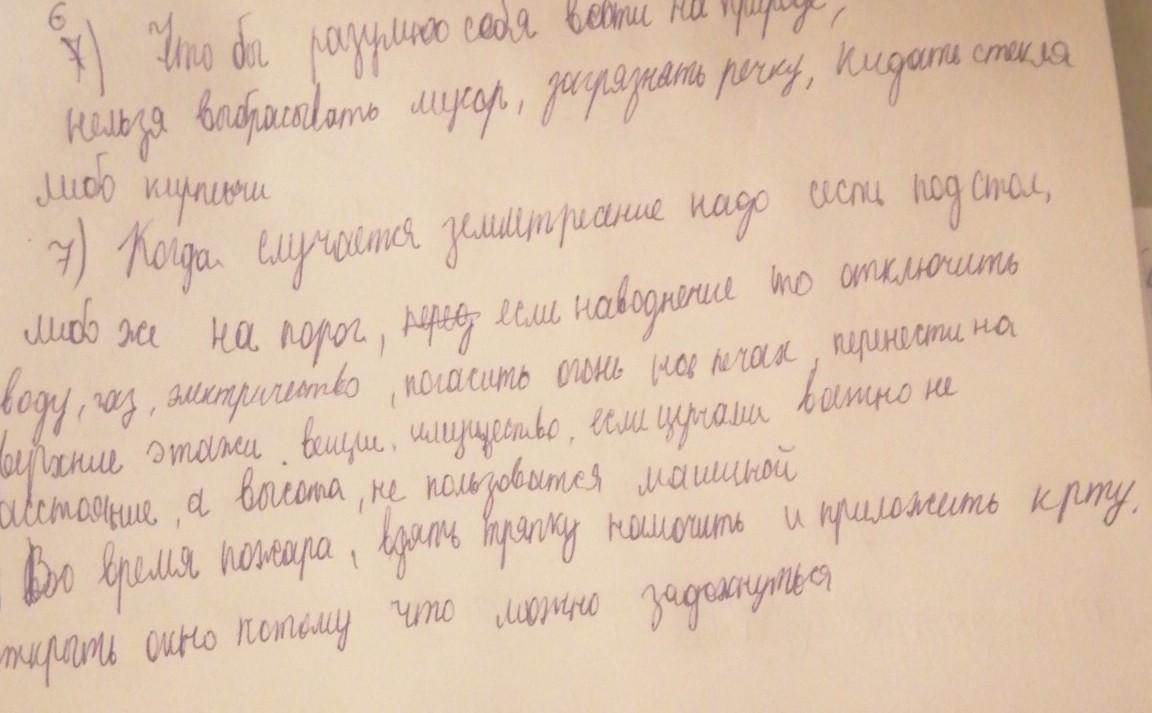 6
7) Что бы разумно себя вести на природе,
нельзя выбрасывать мусор, загрязнать речку, кидать стекля
либо кирпичи
7) Когда случается землетресение надо сесть под стол,
либо же на порог, перед если наводнение то отключить
воду, газ, электричество, погасить огонь в печах, перенести на
верхние этажи вещи. имущество, если цунами важно не
асстояние, а высота, не пользоватся машиной
Во время пожара, взять тряпку намочить и приложить к рту.
ткрыть окно потому что можно задохнуться